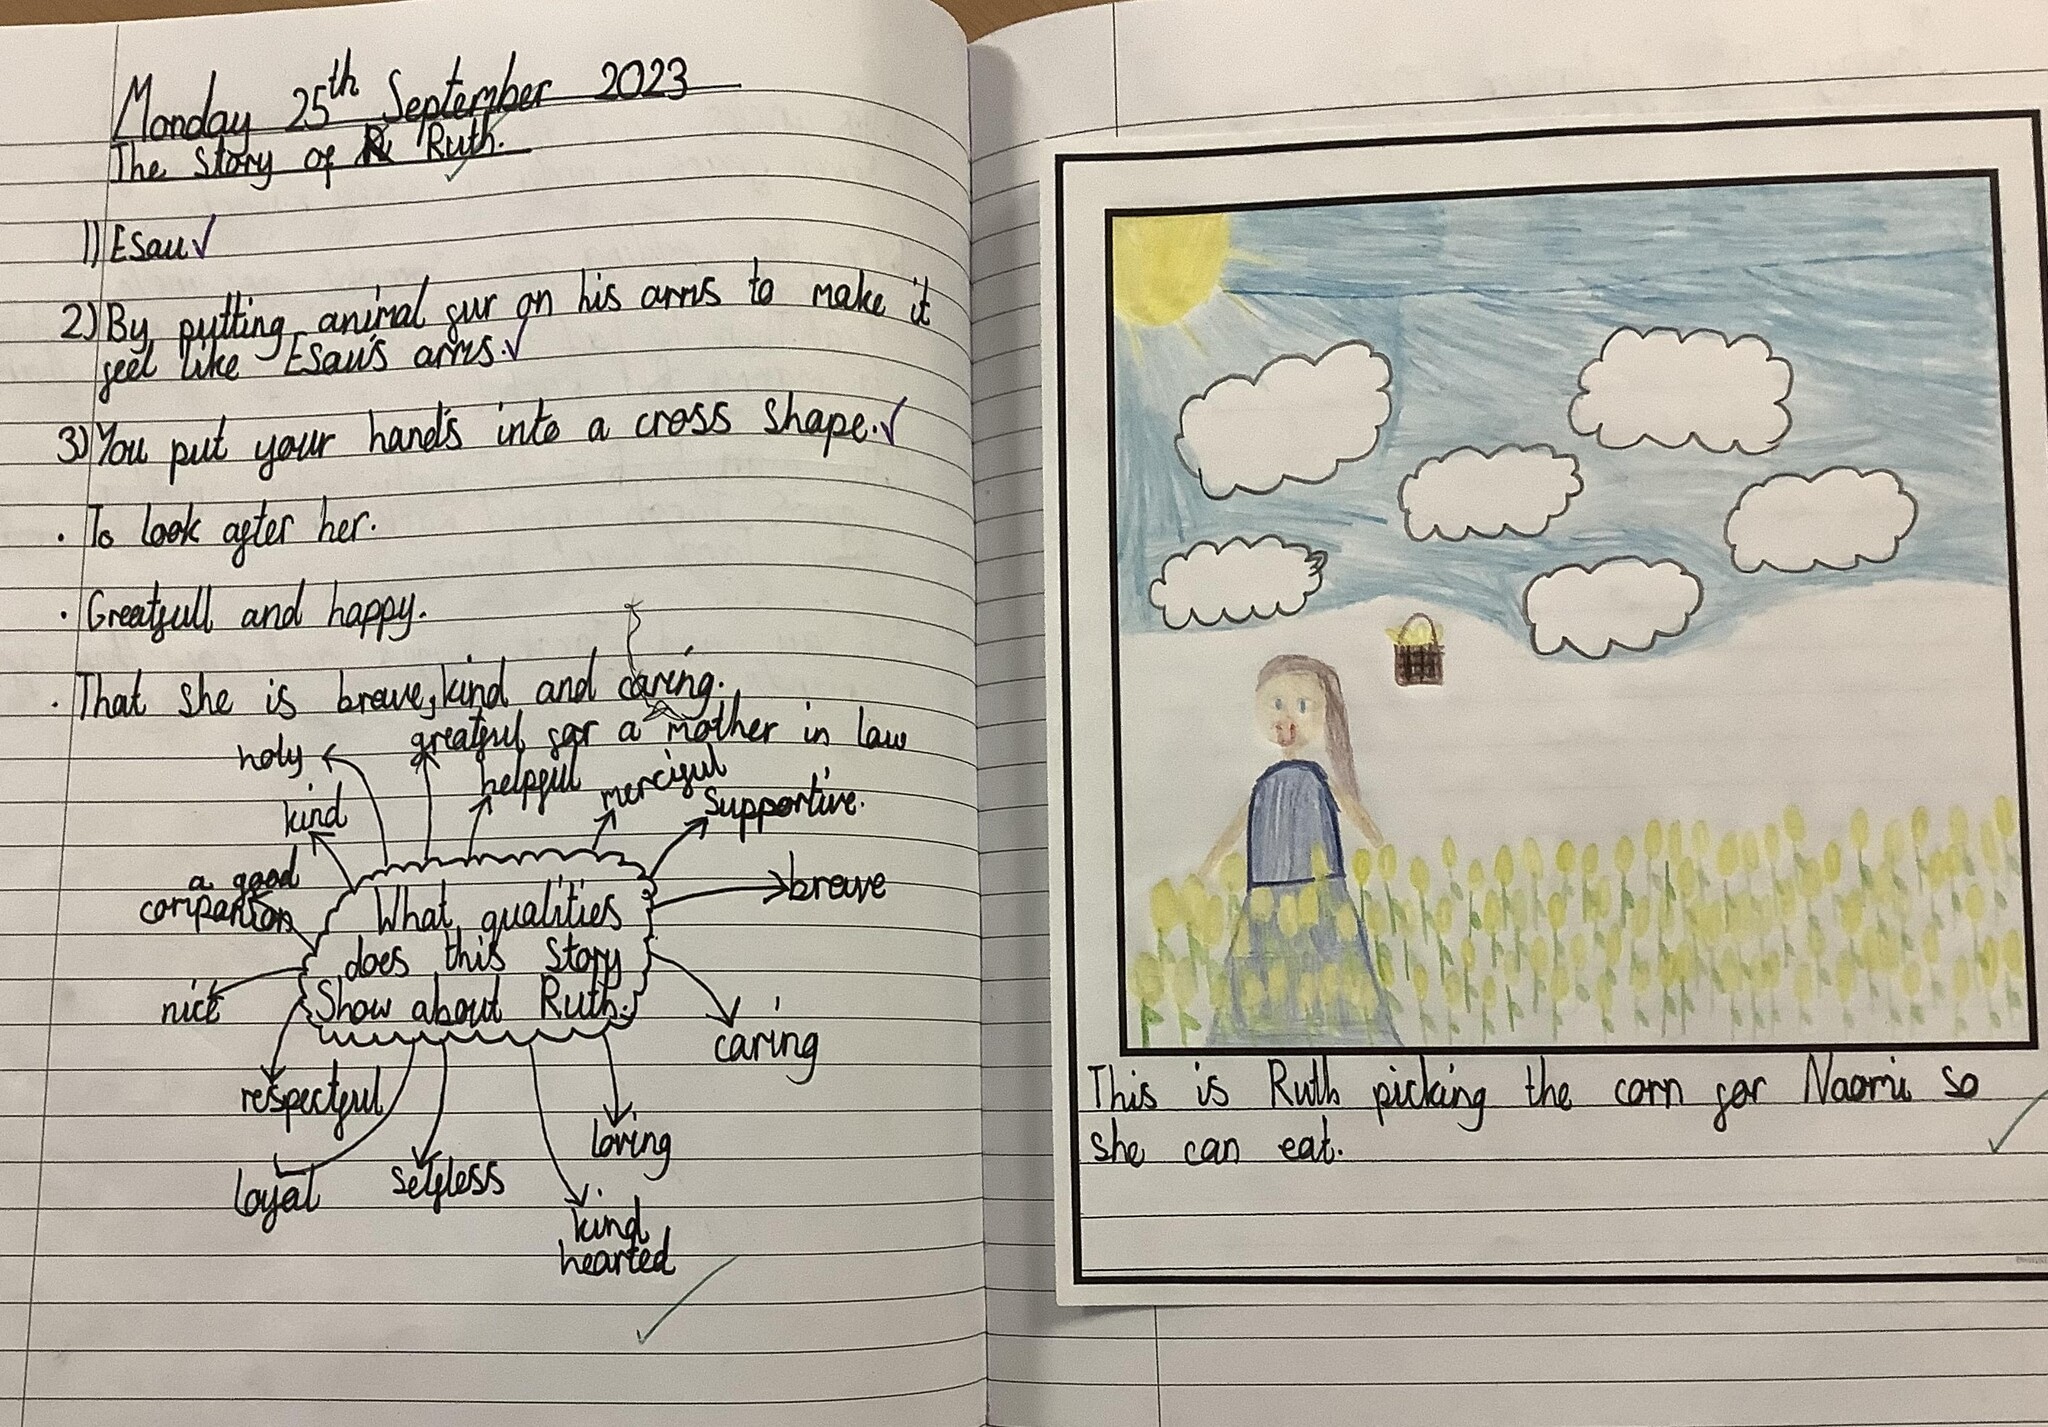 Monday 25th September 2023
The Story of Ruth.
1) Esau
2) By putting animal fur on his arms to make it
feel like Esau's arms.
3) You put your hands into a cross shape.
· To look after her.
· Greatfull and happy.
· That she is brave, kind and caring.
holy
greatful for a mother in law
helpful
merciful
supportive.
kind
a good
companion
brave
What qualities
does this story
Show about Ruth.
nice
caring
respectful
loving
loyal
selfless
kind
hearted
This is Ruth picking the corn for Naomi so
she can eat.